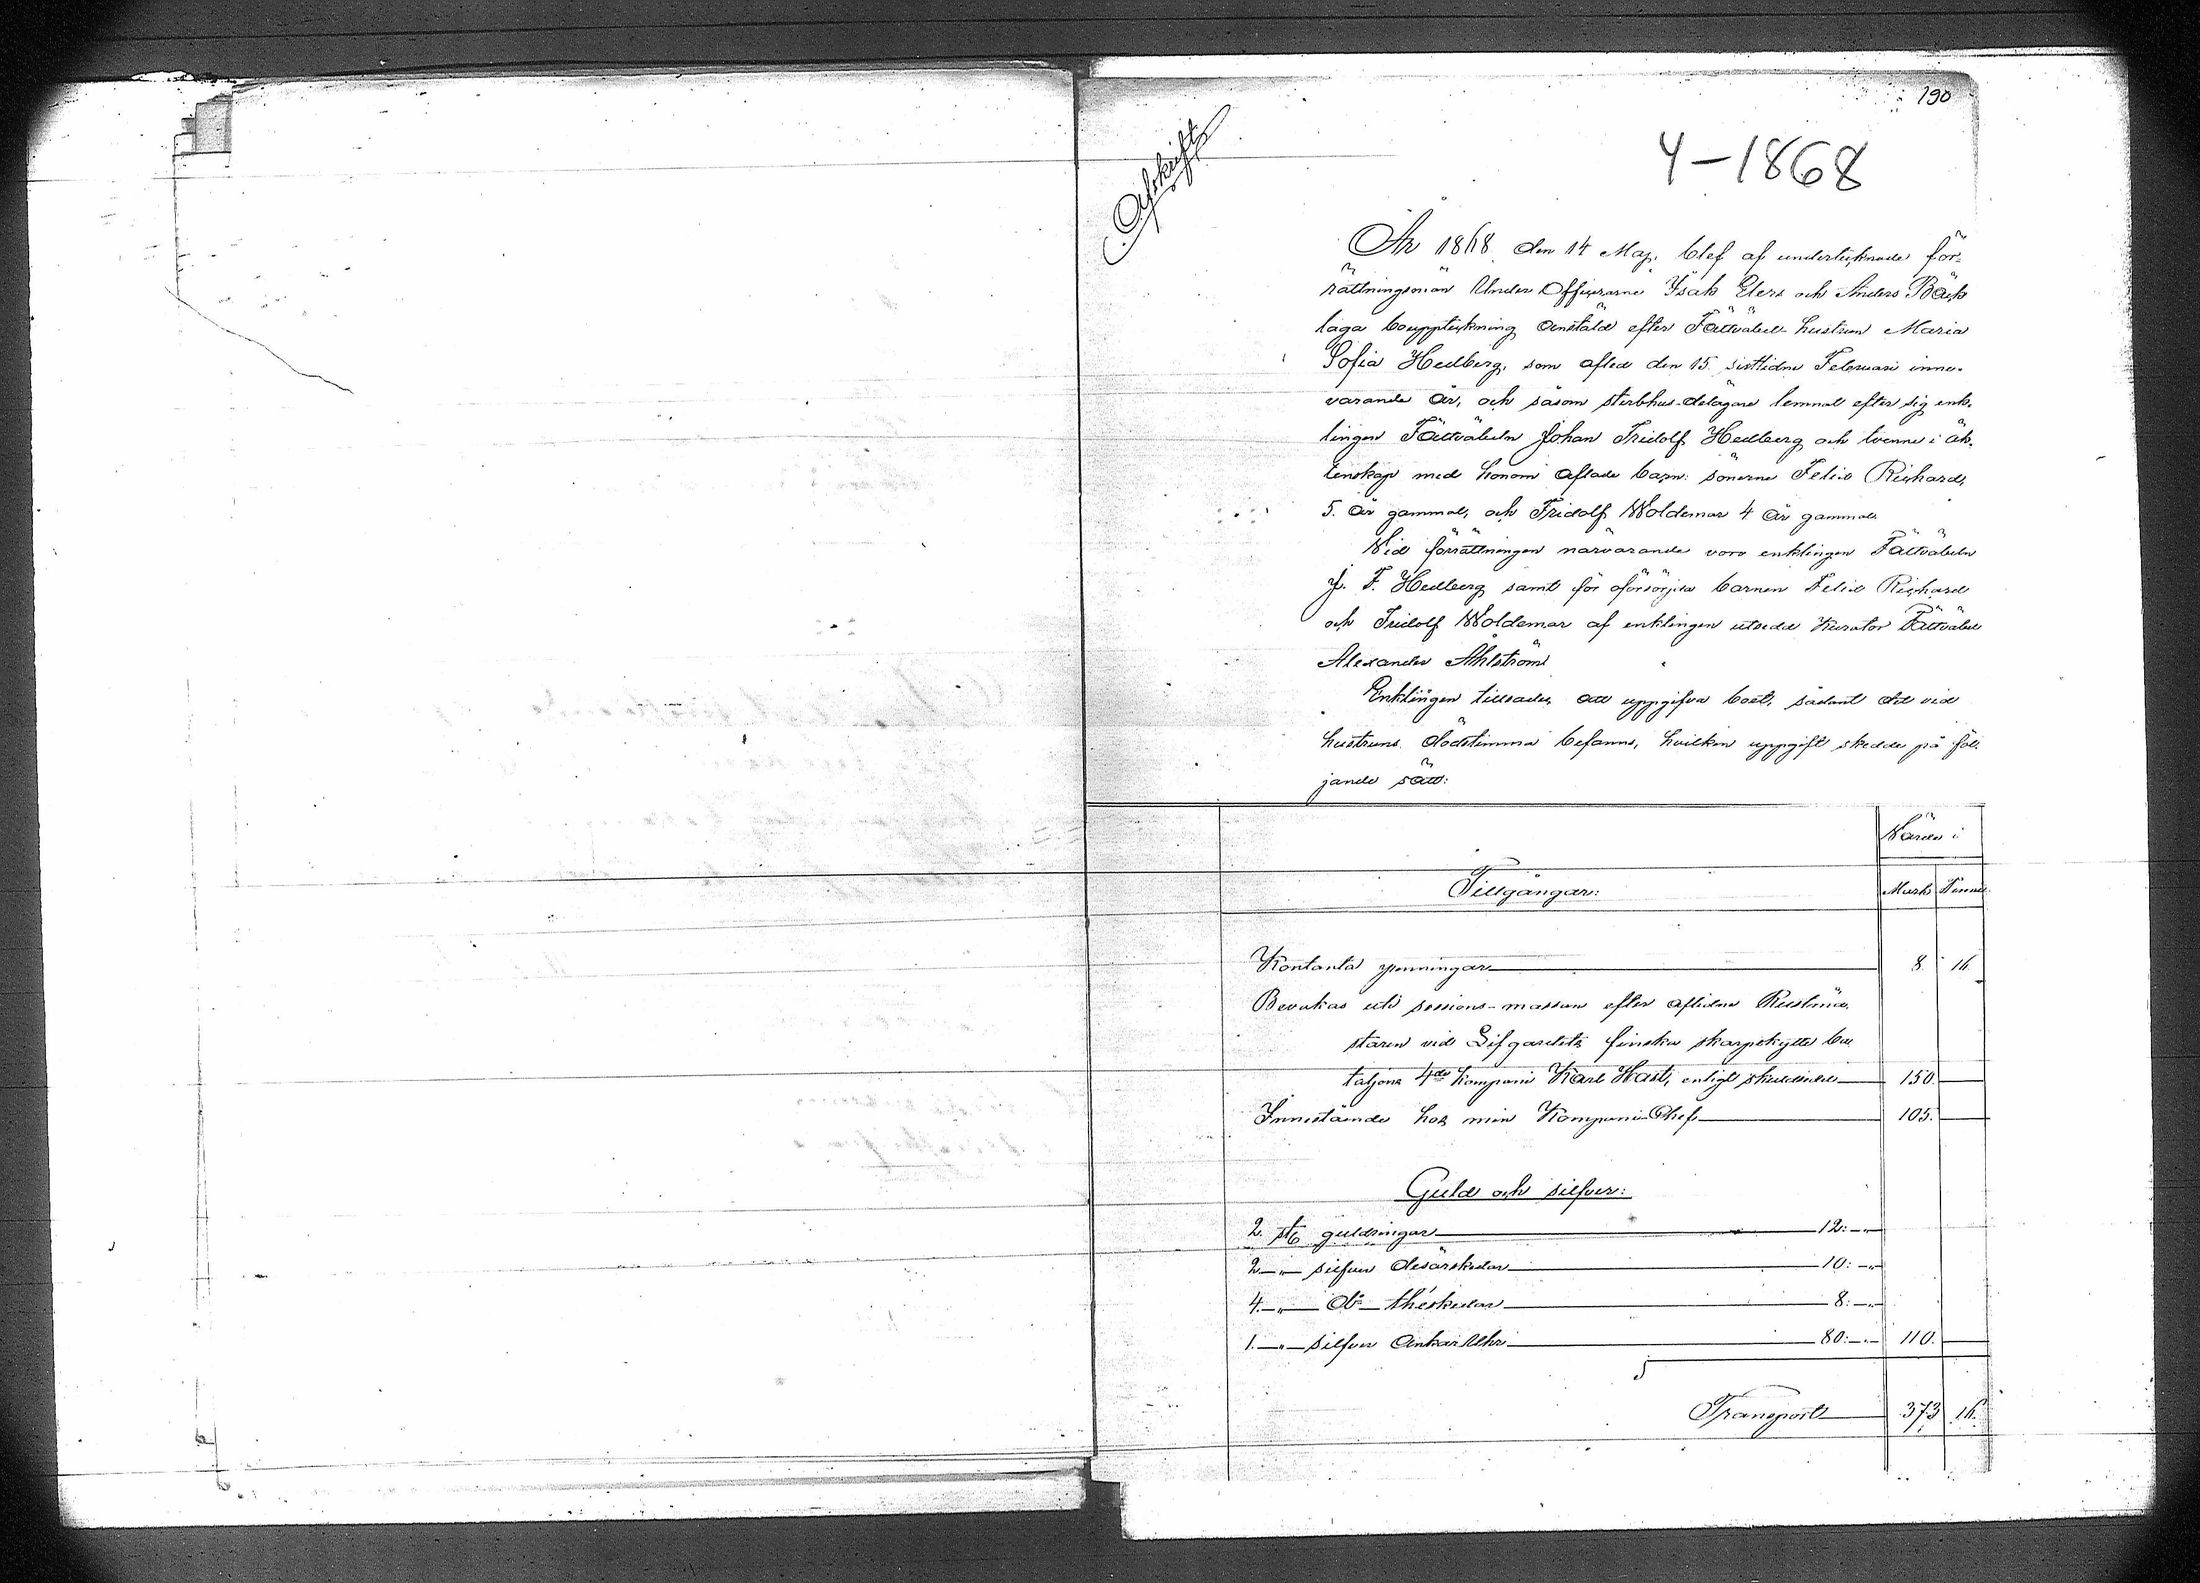 190
4-1868
Afskrift
År 1868 den 14 Maj, blef af undertecknade för-
rättningsmän Under Officerarne Isak Elers och Anders Bäck
laga bouppteckning anstäld efter Fältväbels hustrun Maria
Sofia Hedberg, som afled den 15 sistlidne Februari inne-
varande år, och såsom sterbhus-delägare lemnat efter sig enk-
lingen Fältväbeln Johan Fridolf Hedberg och tvenne i äk-
tenskap med honom aflade barn: sönerne Felix Richard,
5. år gammal, och Fridolf Woldemar 4 år gammal.
Vid förrättningen närvarande voro enklingen Fältväbeln
J. F. Hedberg samt för oförsörjda barnen Felix Richard
och Fridolf Woldemar af enklingen utsedd Kurator Fältväbel
Alexander Åhlström.
Enklingen tillsades, att uppgifva boet, sådant det vid
hustruns dödstimma befanns, hvilken uppgift skedde på föl-
jande sätt:
Värde i
Tillgångar: Mark Penni
Kontanta penningar 8. 16.
Bevakas uti sessions-massan efter aflidne Rustmä-
staren vid Lifgardets finska skarpskytte ba-
taljons 4de Kompani Karl Hast, enligt skuldsedel 150.
Innestående hos min Kompani-Chef 105.
Guld och silfver:
2. st guldringar 12:-"-
2.-"- silfver desärskedar 10:-"-
4.-"- do théskedar 8:-"-
1.-"- silfver Ankar Uhr 80:-"- 110.
Transport 373 16.